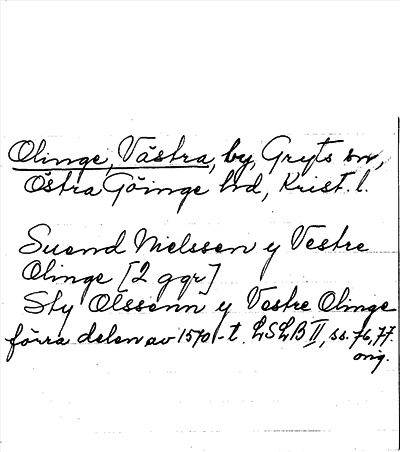 Olinge, Västra, by, Gryts sn,
Östra Göinge hd, Krist. l.
Suend Nielssen y Vestre
Olinge [2 ggr]
Sty Olssenn y Vestre Olinge
förra delen av 1570-t. LSLB II, ss. 76, 77.
orig.